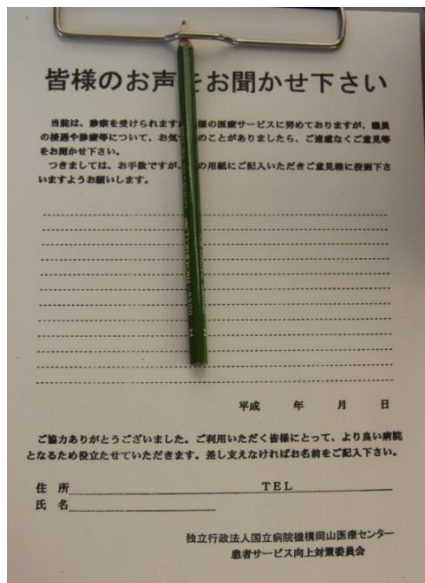 皆様のお声をお聞かせ下さい
当院は、診療を受けられます様の医療サービスに努めておりますが、職員
の接遇や診療等について、お気づのことがありましたら、ご遠慮なくご意見等
をお聞かせ下さい。
つきましては、お手数ですが、の用紙にご記入いただきご意見箱に投函下さ
いますようお願いします。
平成 年 月 日
ご協力ありがとうございました。ご利用いただく皆様にとって、より良い病院
となるため役立たせていただきます。差し支えなければお名前をご記入下さい。
住 所 TEL
氏 名
独立行政法人国立病院機構岡山医療センター
患者サービス向上対策委員会